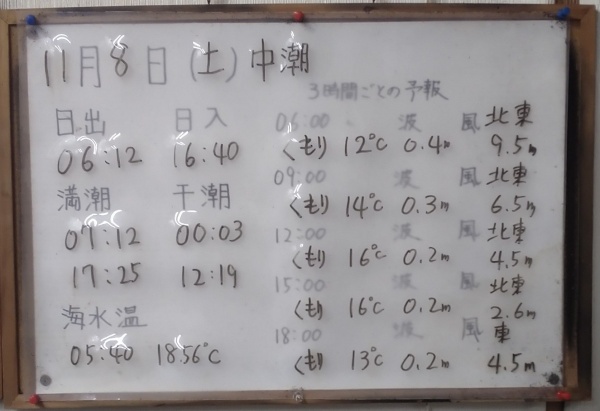 11月8日(土)中潮
日出 日入
06:12 16:40
満潮 干潮
07:12 00:03
17:25 12:19
海水温
05:40 18.56℃
3時間ごとの予報
06:00 波 風 北東
くもり 12℃ 0.4m 9.5m
09:00 波 風 北東
くもり 14℃ 0.3m 6.5m
12:00 波 風 北東
くもり 16℃ 0.2m 4.5m
15:00 波 風 北東
くもり 16℃ 0.2m 2.6m
18:00 波 風 東
くもり 13℃ 0.2m 4.5m